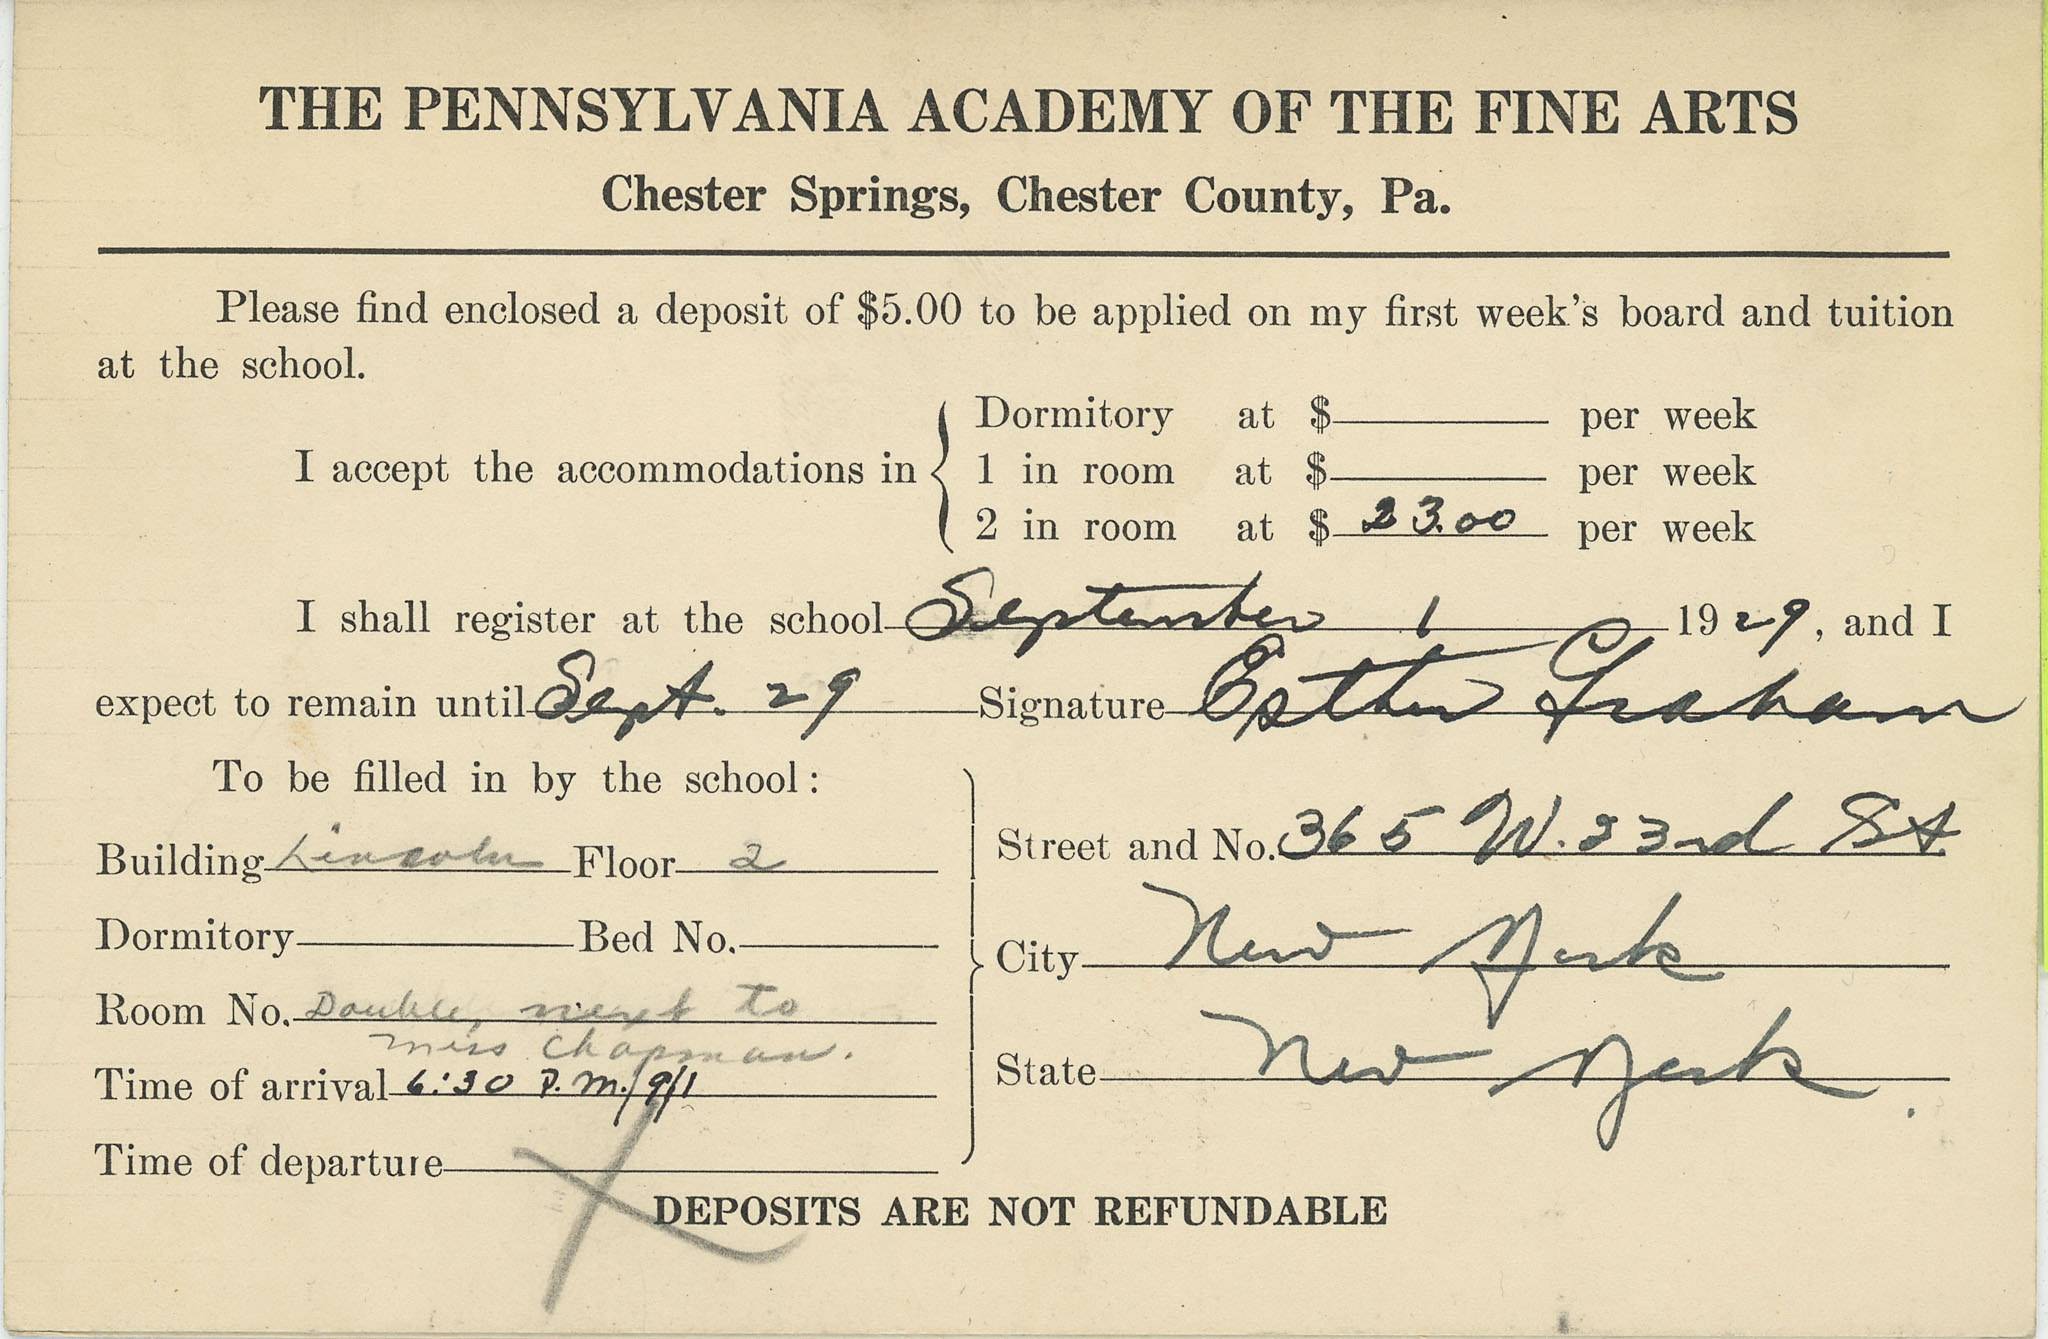 THE PENNSYLVANIA ACADEMY OF THE FINE ARTS
Chester Springs, Chester County, Pa.
Please find enclosed a deposit of $5.00 to be applied on my first week's board and tuition
at the school.
I accept the accommodations in
Dormitory at $ per week
1 in room at $ per week
2 in room at $ 23.00 per week
I shall register at the school September 1 1929, and I
expect to remain until Sept. 29 Signature Esther Graham
To be filled in by the school:
Building Lincoln Floor 2
Dormitory Bed No.
Room No. Double, next to
Miss Chapman.
Time of arrival 6:30 P.M./9/1
Time of departure
Street and No. 365 W. 23rd St
City New York
State New York.
DEPOSITS ARE NOT REFUNDABLE